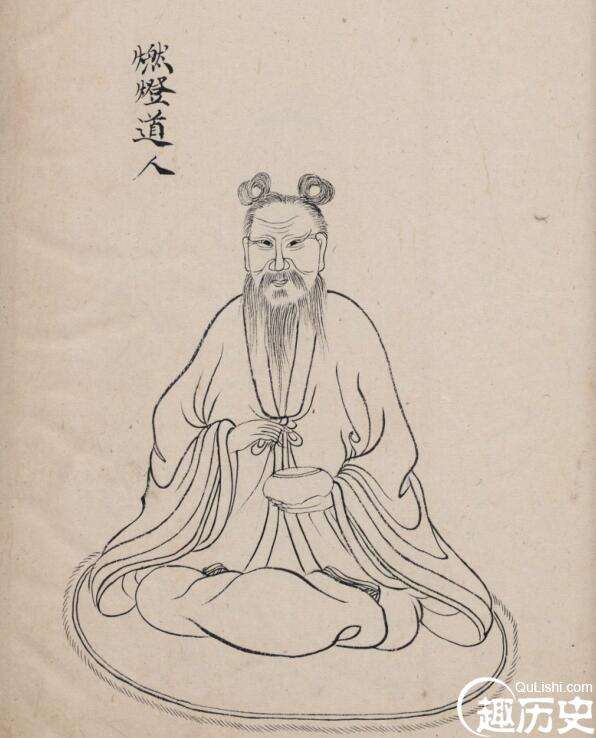 燃燈道人
QuLishi.com
趣历史